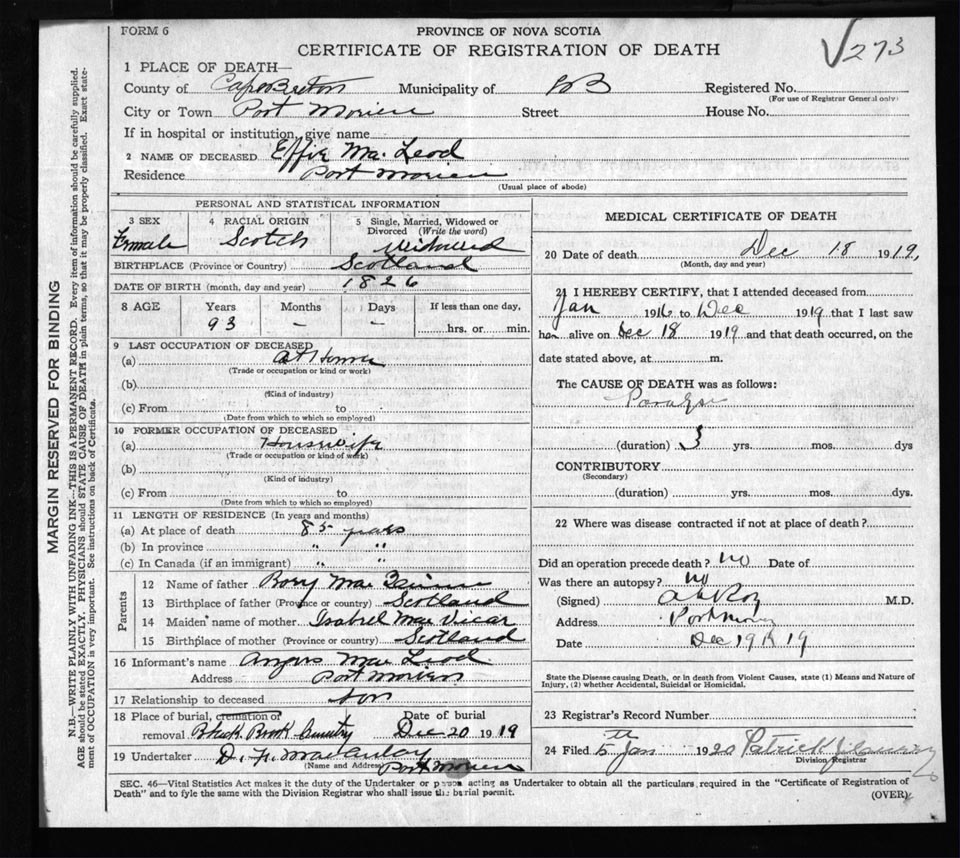 FORM 6
PROVINCE OF NOVA SCOTIA
CERTIFICATE OF REGISTRATION OF DEATH
√273
1 PLACE OF DEATH—
County of Cape Breton Municipality of Registered No.
(For use of Registrar General only)
City or Town Port Morien Street House No.
If in hospital or institution, give name
2 NAME OF DECEASED Effie Mac Leod
Residence Port Morien
(Usual place of abode)
PERSONAL AND STATISTICAL INFORMATION
3 SEX Female
4 RACIAL ORIGIN Scotch
5 Single, Married, Widowed or Divorced (Write the word) Widowed
BIRTHPLACE (Province or Country) Scotland
DATE OF BIRTH (month, day and year) 1826
8 AGE Years 93 Months – Days – If less than one day, hrs. or min.
9 LAST OCCUPATION OF DECEASED
(a) At Home
(Trade or occupation or kind or work)
(b)
(Kind of industry)
(c) From to
(Date from which to which so employed)
10 FORMER OCCUPATION OF DECEASED
(a) Housewife
(Trade or occupation or kind of work)
(b)
(Kind of industry)
(c) From to
(Date from which to which so employed)
11 LENGTH OF RESIDENCE (In years and months)
(a) At place of death 85 years
(b) In province " "
(c) In Canada (if an immigrant) " "
Parents
12 Name of father Rory Mac
13 Birthplace of father (Province or country) Scotland
14 Maiden name of mother Isabel Mac Vicar
15 Birthplace of mother (Province or country) Scotland
16 Informant's name Angus Mac Leod
Address Port Morien
17 Relationship to deceased Son
18 Place of burial, cremation or removal Black Brook Cemetry Date of burial Dec 20 1919
19 Undertaker D. MacAulay
(Name and Address) Port Morien
MEDICAL CERTIFICATE OF DEATH
20 Date of death Dec 18 1919,
(Month, day and year)
21 I HEREBY CERTIFY, that I attended deceased from
Jan 1916 to Dec 1919 that I last saw
her alive on Dec 18 1919 and that death occurred, on the
date stated above, at m.
The CAUSE OF DEATH was as follows:
(duration) 3 yrs. mos. dys
CONTRIBUTORY
(Secondary)
(duration) yrs. mos. dys.
22 Where was disease contracted if not at place of death?
Did an operation precede death? no Date of
Was there an autopsy? no
(Signed) M.D.
Address Port Morien
Date Dec 19 19
State the Disease causing Death, or in death from Violent Causes, state (1) Means and Nature of
Injury, (2) whether Accidental, Suicidal or Homicidal.
23 Registrar's Record Number
24 Filed 5th Jan 1920 Patrick
Division Registrar
SEC. 46—Vital Statistics Act makes it the duty of the Undertaker or person acting as Undertaker to obtain all the particulars required in the "Certificate of Registration of
Death" and to fyle the same with the Division Registrar who shall issue the burial permit.
(OVER)
MARGIN RESERVED FOR BINDING
N.B.—WRITE PLAINLY WITH UNFADING INK—THIS IS A PERMANENT RECORD. Every item of information should be carefully supplied.
AGE should be stated EXACTLY. PHYSICIANS should STATE CAUSE OF DEATH in plain terms, so that it may be properly classified. Exact state-
ment of OCCUPATION is very important. See instructions on back of Certificate.